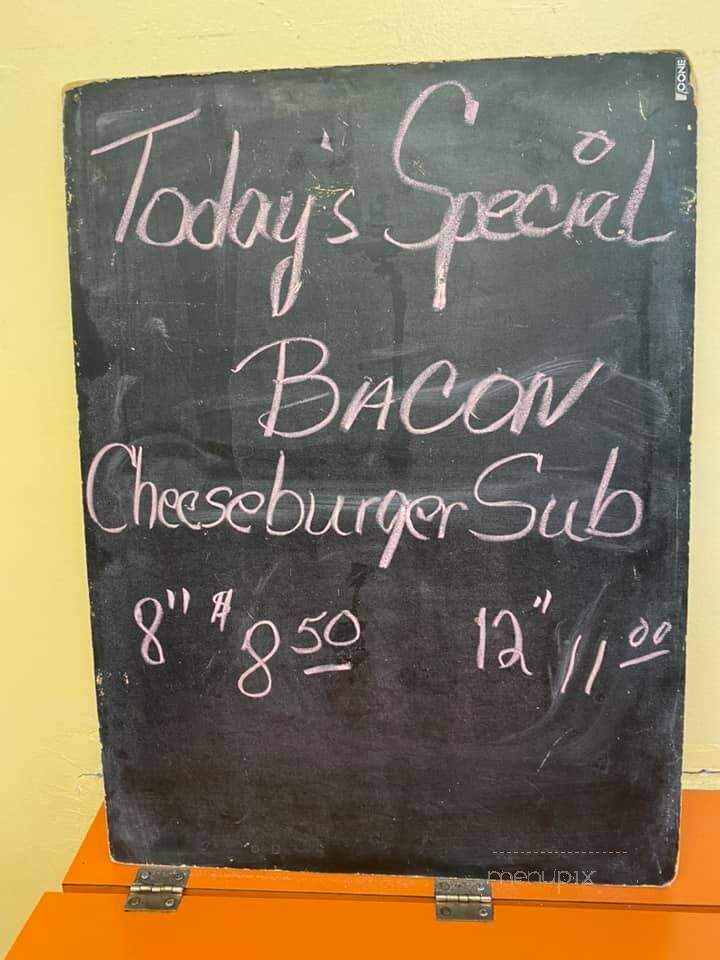 Today's Special
BACON
Cheeseburger Sub
8" $8.50 12" 11.00
menupix